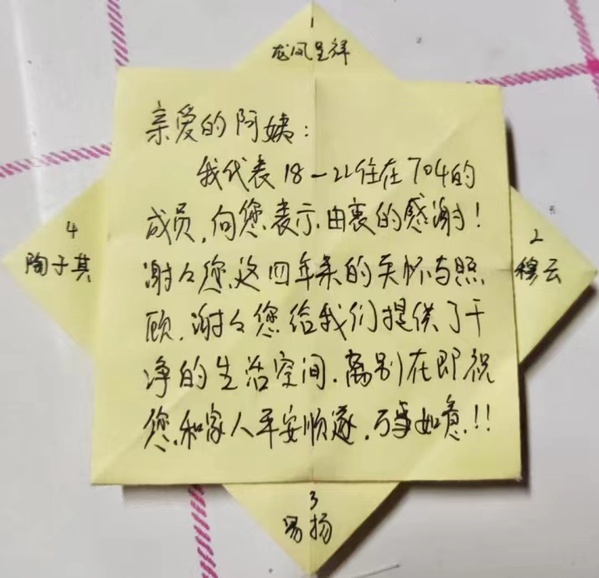 1
龙凤呈祥
亲爱的阿姨:
我代表18-22住在704的
成员,向您表示由衷的感谢!
谢々您这四年来的关怀与照
顾,谢々您给我们提供了干
净的生活空间.离别在即祝
您和家人平安顺遂,万事如意!!
4
陶子其
2
穆云
3
易扬